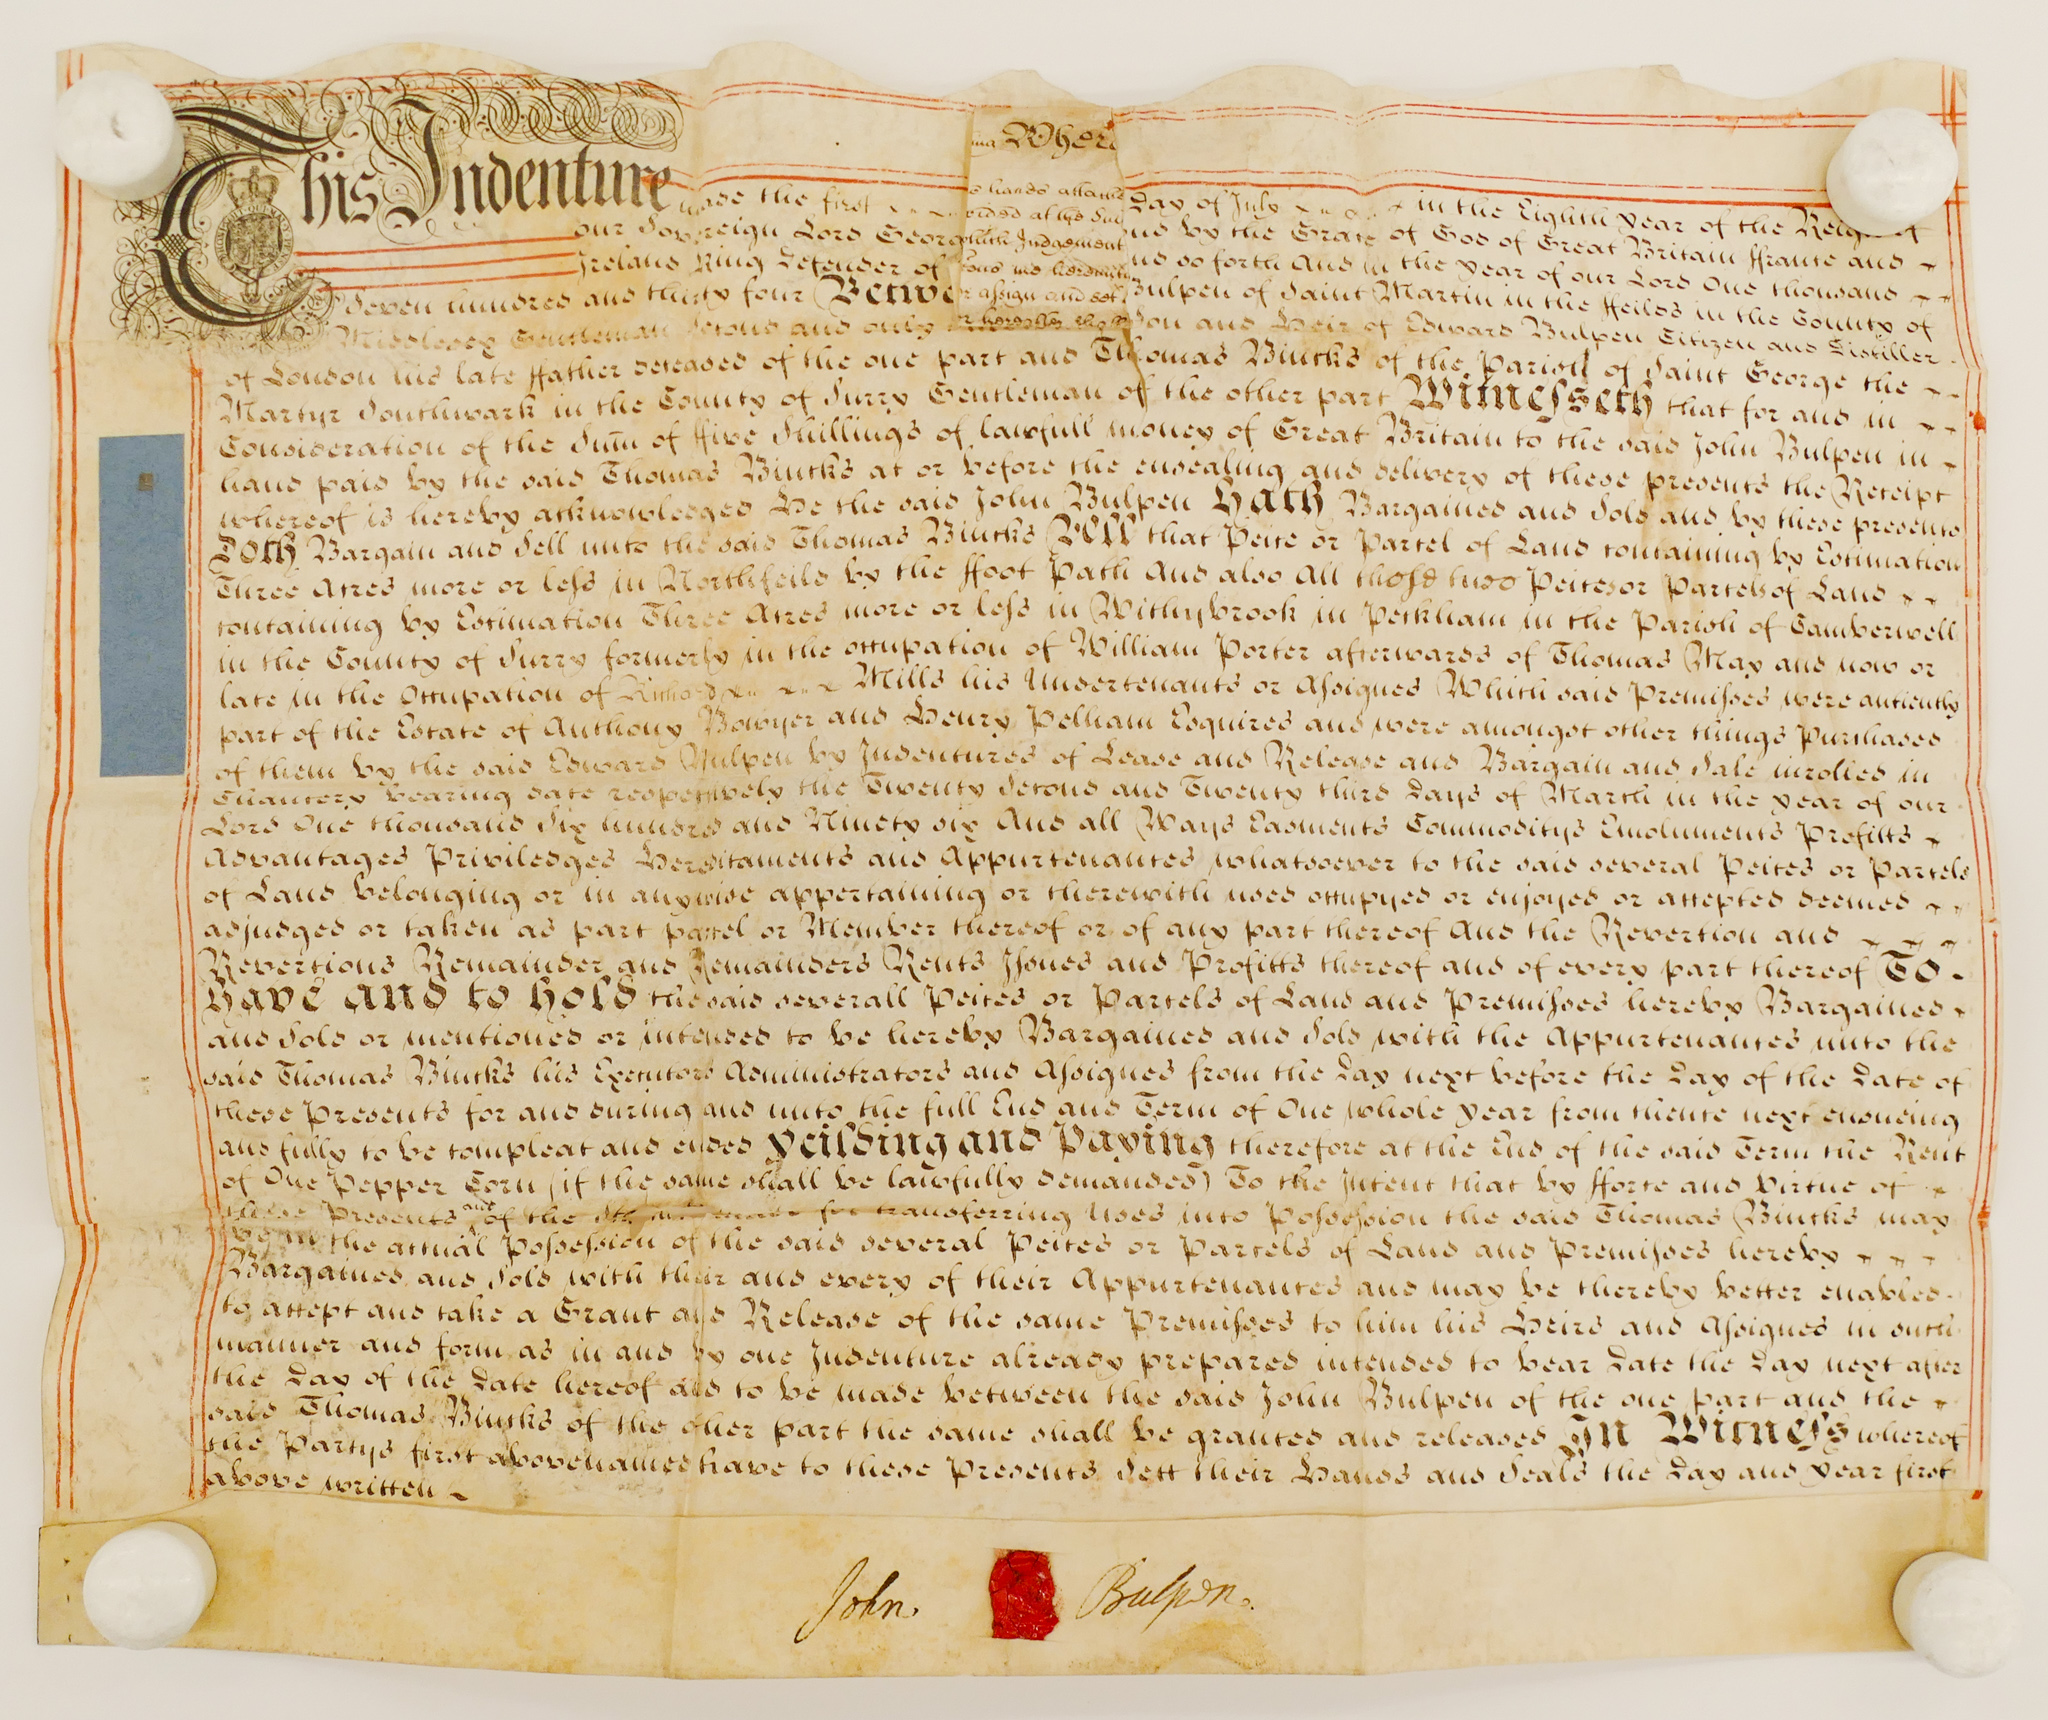 This Indenture made the first Day of July in the Eighth Year of the Reign of
our Sovereign Lord Georg by the Grace of God of Great Britain ffrance and
Ireland King Defender of and so forth And in the year of our Lord One thousand
Seven hundred and thirty four Betwe Bulpen of Saint Martin in the ffeilds in the County of
Middlesex Gentleman Second and only Son and Heir of Edward Bulpen Citizen and Distiller
of London his late ffather deceased of the one part and Thomas Bincks of the Parish of Saint George the
Martyr Southwark in the County of Surry Gentleman of the other part Witnesseth that for and in
Consideration of the Sum of ffive Shillings of lawfull money of Great Britain to the said John Bulpen in
hand paid by the said Thomas Bincks at or before the ensealing and delivery of these presents the Receipt
whereof is hereby acknowledged He the said John Bulpen Hath Bargained and Sold and by these presents
Doth Bargain and Sell unto the said Thomas Bincks All that Peice or Parcel of Land containing by Estimation
Three Acres more or less in Northfeild by the ffoot Path And also All those two Peices or Parcels of Land
containing by Estimation Three Acres more or less in Withybrook in Peckham in the Parish of Camberwell
in the County of Surry formerly in the occupation of William Porter afterwards of Thomas May and now or
late in the Occupation of Richard Mills his Undertenants or Assignes Which said Premisses were antiently
part of the Estate of Anthony Bowyer and Henry Pelham Esquires and were amongst other things Purchased
of them by the said Edward Bulpen by Indentures of Lease and Release and Bargain and Sale inrolled in
Chancery bearing date respectively the Twenty Second and Twenty third Days of March in the year of our
Lord One thousand Six hundred and Ninety six And all Ways Easments Commoditys Emoluments Profitts
Advantages Priviledges Hereditaments and Appurtenances whatsoever to the said several Peices or Parcels
of Land belonging or in anywise appertaining or therewith used occupyed or enjoyed or accepted deemed
adjudged or taken as part parcel or Member thereof or of any part thereof And the Revertion and
Revertions Remainder and Remainders Rents Issues and Profitts thereof and of every part thereof To
have and to hold the said severall Peices or Parcels of Land and Premisses hereby Bargained
and Sold or mentioned or intended to be hereby Bargained and Sold with the Appurtenances unto the
said Thomas Bincks his Executors Administrators and Assignes from the Day next before the Day of the Date of
these Presents for and during and unto the full End and Term of One whole year from thence next ensueing
and fully to be compleat and ended Yeilding and Paying therefore at the End of the said Term the Rent
of One Pepper Corn (if the same shall be lawfully demanded) To the Intent that by fforce and Virtue of
these Presents and of the for transferring Uses into Possession the said Thomas Bincks may
be in the actual Possession of the said several Peices or Parcels of Land and Premisses hereby
Bargained and Sold with their and every of their Appurtenances and may be thereby better enabled
to accept and take a Grant and Release of the same Premisses to him his Heirs and Assignes in such
manner and form as in and by one Indenture already prepared intended to bear Date the Day next after
the Day of the Date hereof and to be made between the said John Bulpen of the one part and the
said Thomas Bincks of the other part the same shall be granted and released In Witness whereof
the Partys first abovenamed have to these Presents Sett their Hands and Seals the Day and Year first
above written
John Bulpen